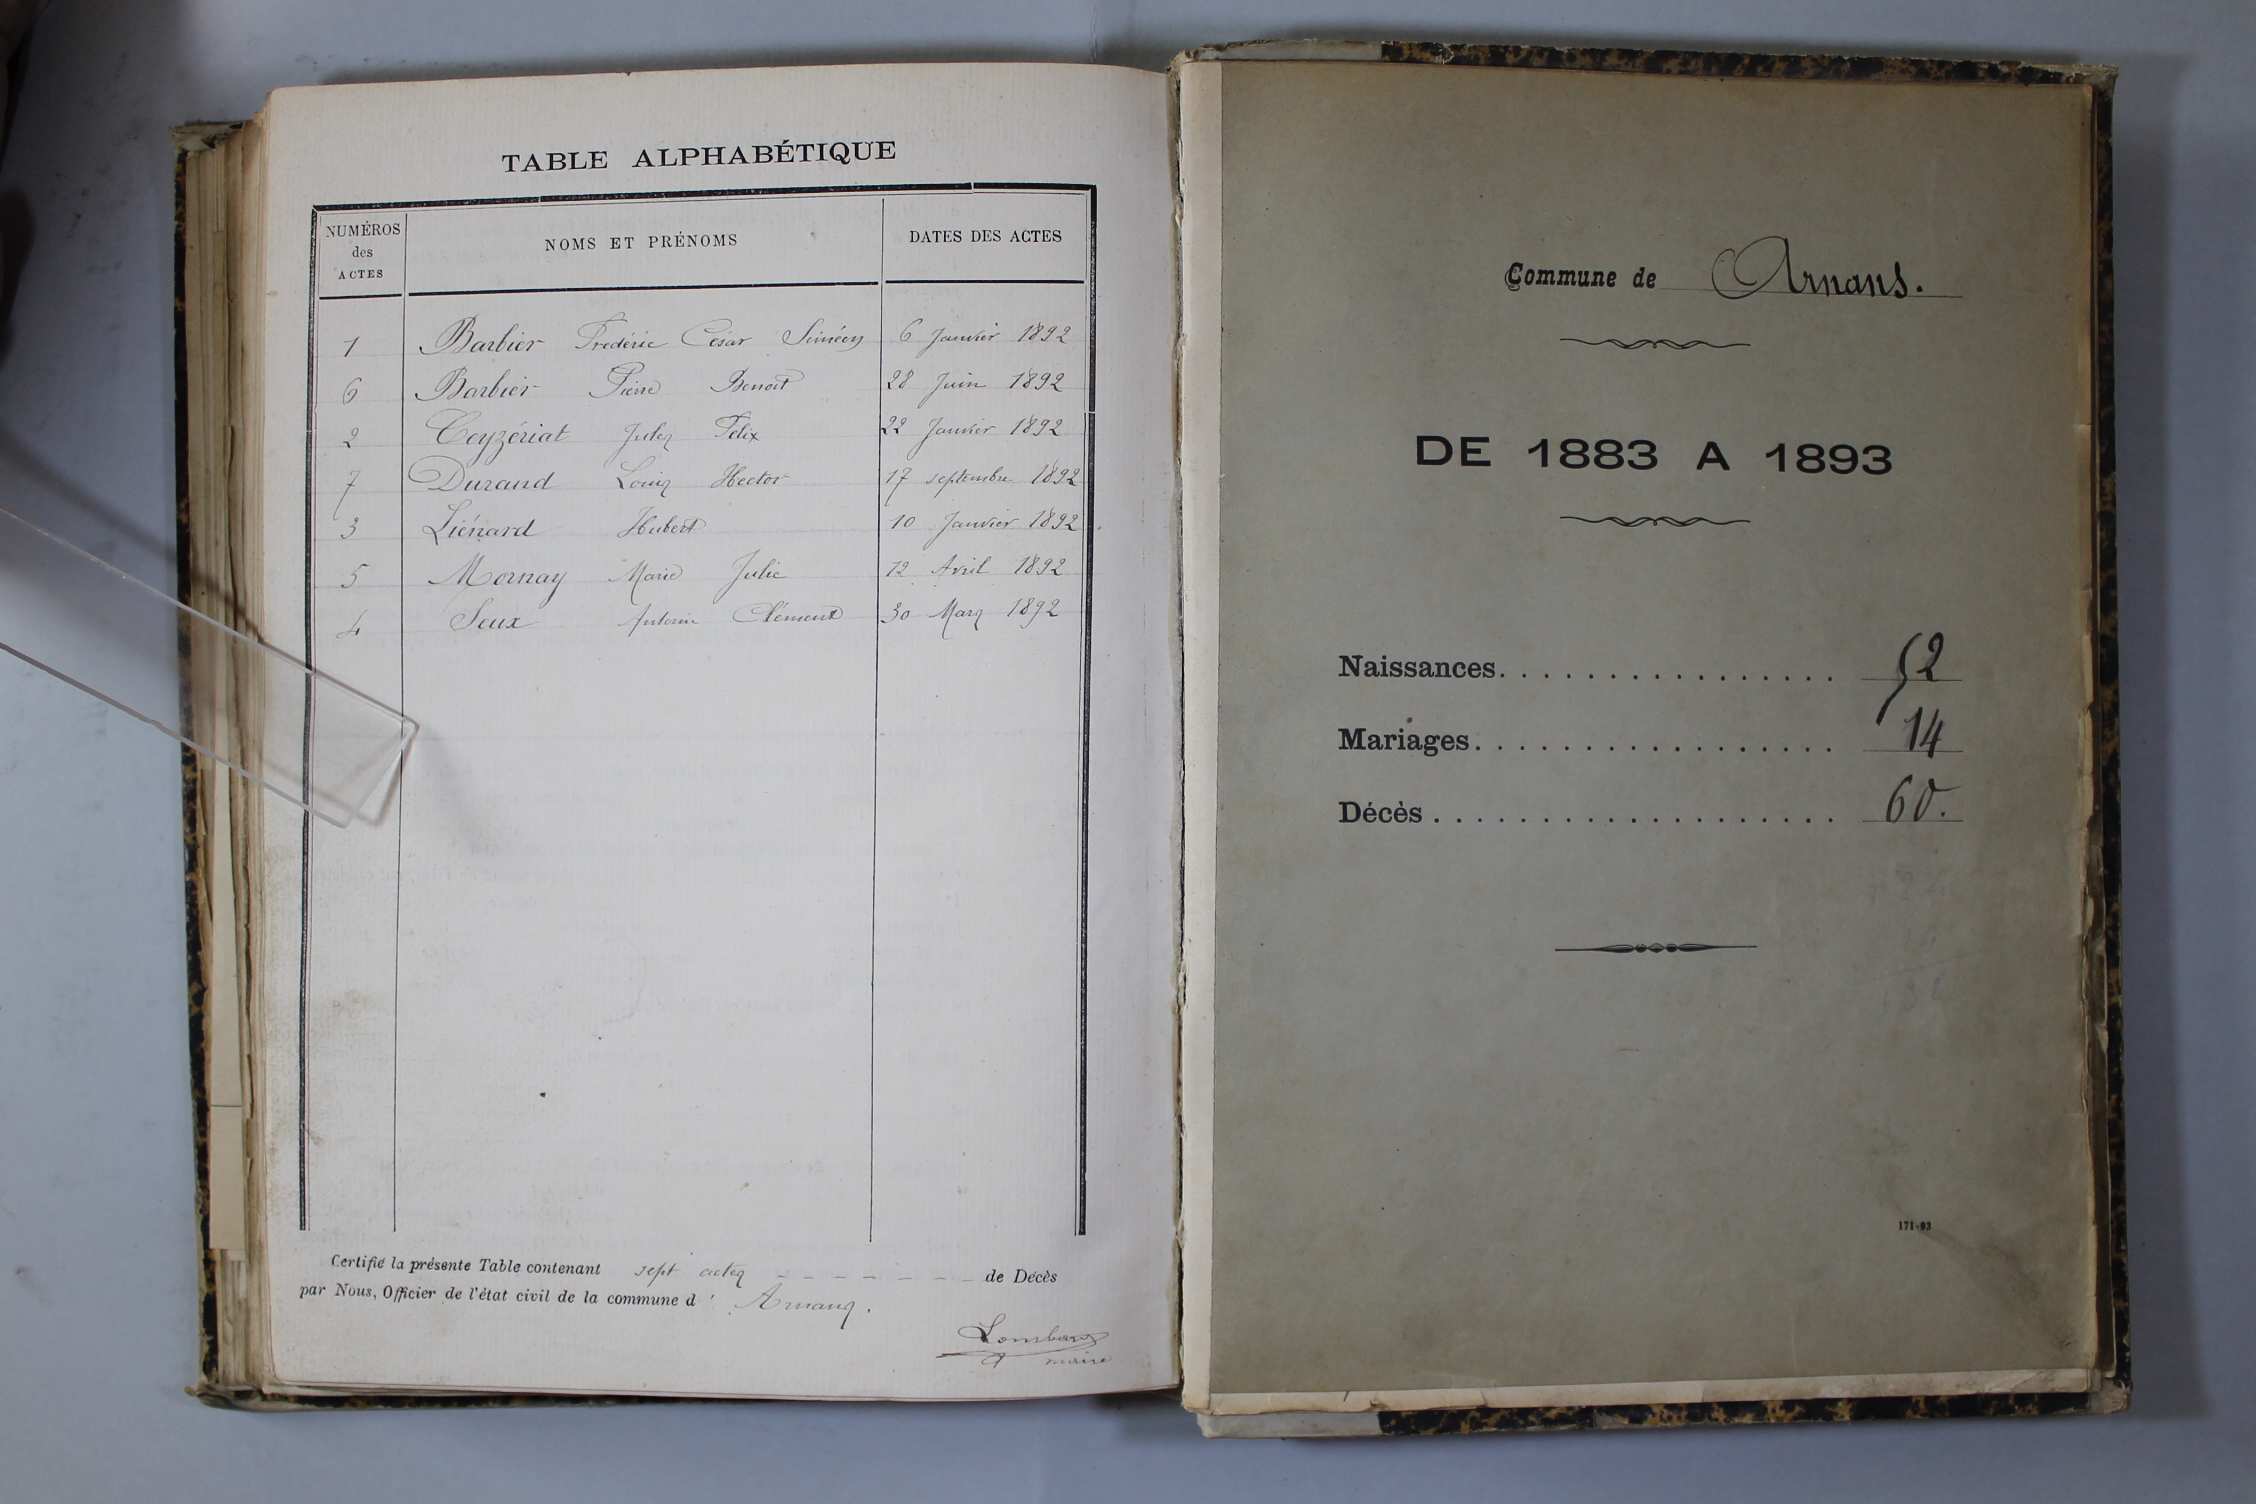 TABLE ALPHABÉTIQUE
NUMÉROS des ACTES
NOMS ET PRÉNOMS
DATES DES ACTES
1 Barbier Frédéric César Siméon 6 Janvier 1892
6 Barbier Pierre Benoit 28 Juin 1892
2 Ceyzériat Jules Félix 22 Janvier 1892
7 Durand Louis Hector 17 septembre 1892
3 Liénard Hubert 10 Janvier 1892
5 Mornay Marie Julie 12 Avril 1892
4 Seux Antonin Clément 30 Mars 1892
Certifié la présente Table contenant sept actes - - - - - - - de Décès
par Nous, Officier de l'état civil de la commune d' Arnans.
Lombard
maire
Commune de Arnans.
DE 1883 A 1893
Naissances. . . . . . . . . . . . . . . . 52
Mariages. . . . . . . . . . . . . . . . . 14
Décès . . . . . . . . . . . . . . . . . . . 60.
171-93